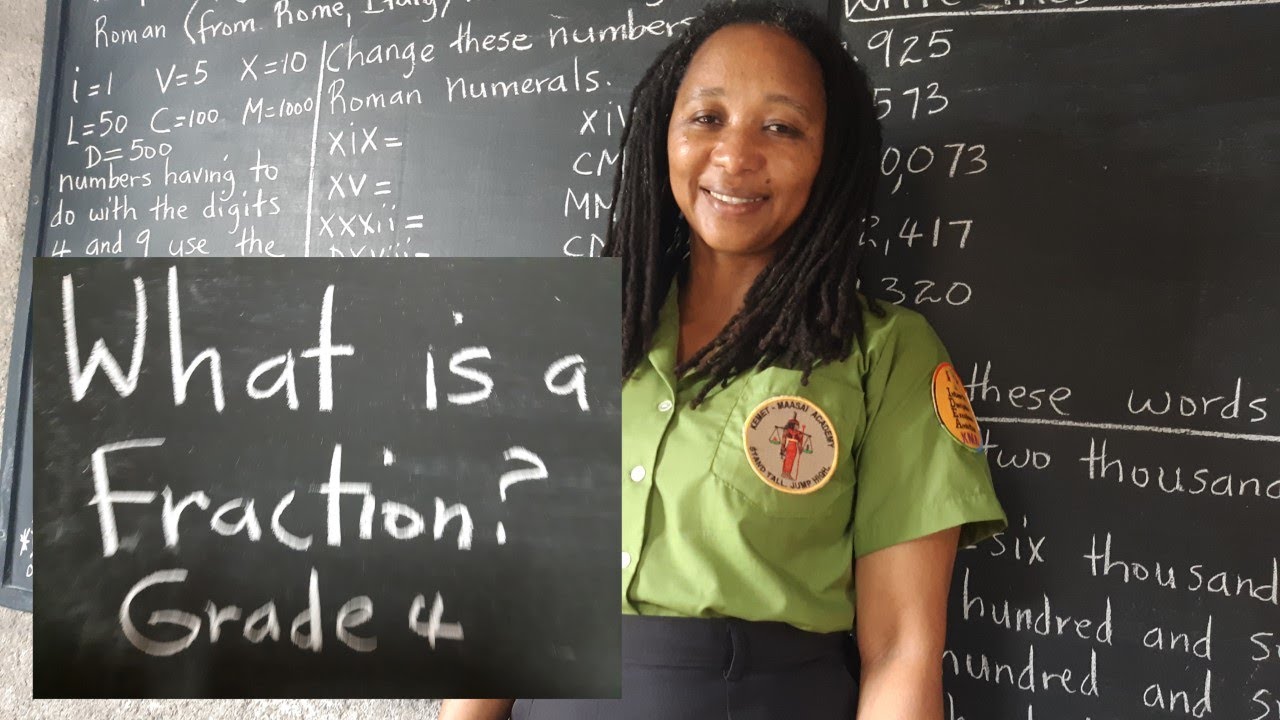 Roman (from Rome, Italy)
i=1 V=5 X=10
L=50 C=100 M=1000
D=500
numbers having to
do with the digits
4 and 9 use the
Change these numbers
Roman numerals.
xix=
xv=
xxxii=
xiv
CM
MM
925
573
0,073
2,417
320
these words
two thousand
six thousand
hundred and
hundred and
What is a
Fraction?
Grade 4
KEMET - MAASAI ACADEMY
STAND TALL, JUMP HIGH.